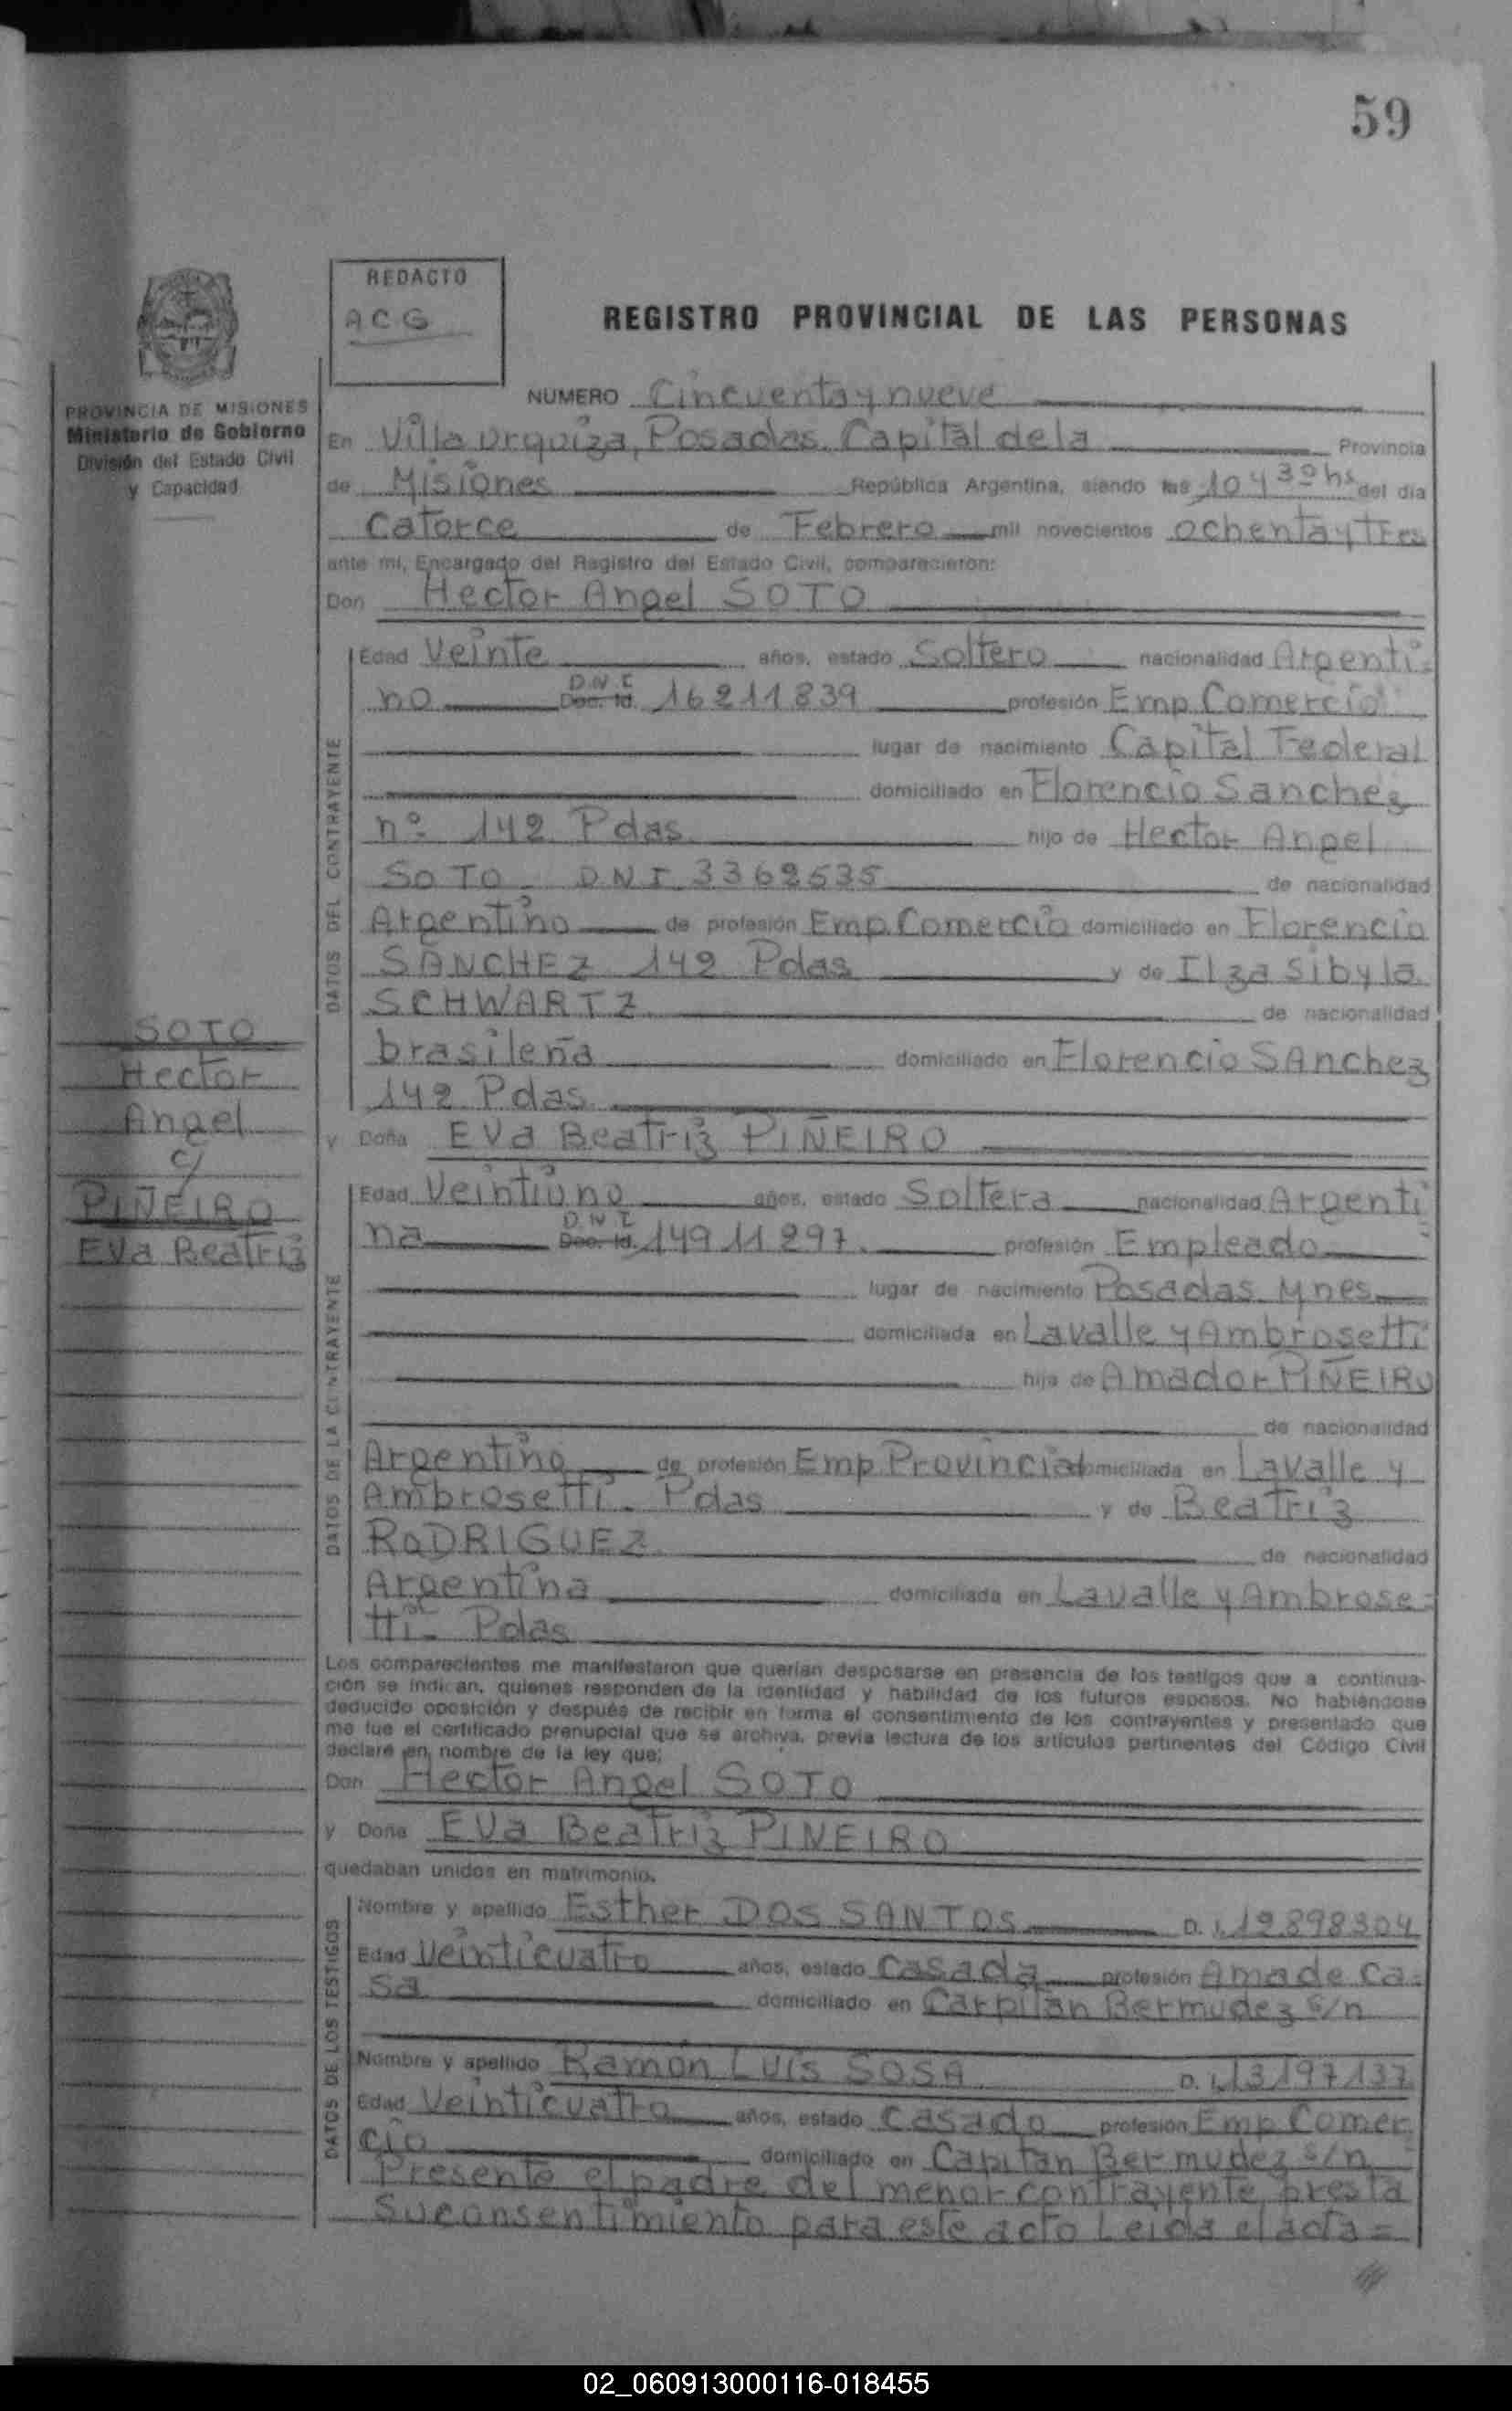 59
REDACTO
ACG
REGISTRO PROVINCIAL DE LAS PERSONAS
PROVINCIA DE MISIONES
Ministerio de Gobierno
División del Estado Civil
y Capacidad
NUMERO Cincuenta y nueve
En Villa Urquiza, Posadas. Capital de la Provincia
de Misiones República Argentina, siendo las 10 y 30 hs del día
Catorce de Febrero mil novecientos ochenta y tres
ante mí, Encargado del Registro del Estado Civil, comparecieron:
Don Hector Angel SOTO
DATOS DEL CONTRAYENTE
Edad Veinte años, estado Soltero nacionalidad Argenti=
no D.N.I Doc. Id. 16211839 profesión Emp Comercio
lugar de nacimiento Capital Federal
domiciliado en Florencio Sanchez
nº 142 Pdas hijo de Hector Angel
SOTO. D.N.I 3362535 de nacionalidad
Argentino de profesión Emp. Comercio domiciliado en Florencio
SANCHEZ 142 Pdas y de Ilza Sibyla
SCHWARTZ de nacionalidad
brasileña domiciliado en Florencio SAnchez
142 Pdas.
SOTO
Hector
Angel
c/
PIÑEIRO
Eva Beatriz
y Doña Eva Beatriz PIÑEIRO
DATOS DE LA CONTRAYENTE
Edad Veintiuno años, estado Soltera nacionalidad Argenti
na D.N.I Doc. Id. 14911297. profesión Empleado
lugar de nacimiento Posadas. Mnes
domiciliada en Lavalle y Ambrosetti
hija de Amador PIÑEIRO
de nacionalidad
Argentino de profesión Emp Provincial domiciliada en Lavalle y
Ambrosetti. Pdas y de Beatriz
RODRIGUEZ de nacionalidad
Argentina domiciliada en Lavalle y Ambrose=
tti- Pdas
Los comparecientes me manifestaron que querían desposarse en presencia de los testigos que a continua-
ción se indican, quienes responden de la identidad y habilidad de los futuros esposos. No habiéndose
deducido oposición y después de recibir en forma el consentimiento de los contrayentes y presentado que
me fue el certificado prenupcial que se archiva, previa lectura de los artículos pertinentes del Código Civil
declaré en nombre de la ley que:
Don Hector Angel SOTO
y Doña Eva Beatriz PIÑEIRO
quedaban unidos en matrimonio.
DATOS DE LOS TESTIGOS
Nombre y apellido Esther DOS SANTOS D. I. 12.898304
Edad Veinticuatro años, estado Casada profesión Ama de Ca=
sa domiciliado en Carpitan Bermudez s/n
Nombre y apellido Ramón Luis SOSA D. I. 13197137
Edad Veinticuatro años, estado Casado profesión Emp Comer
cio domiciliado en Capitan Bermudez s/n
Presente el padre del menor contrayente presta
su consentimiento para este acto Leida el acta=
02_060913000116-018455